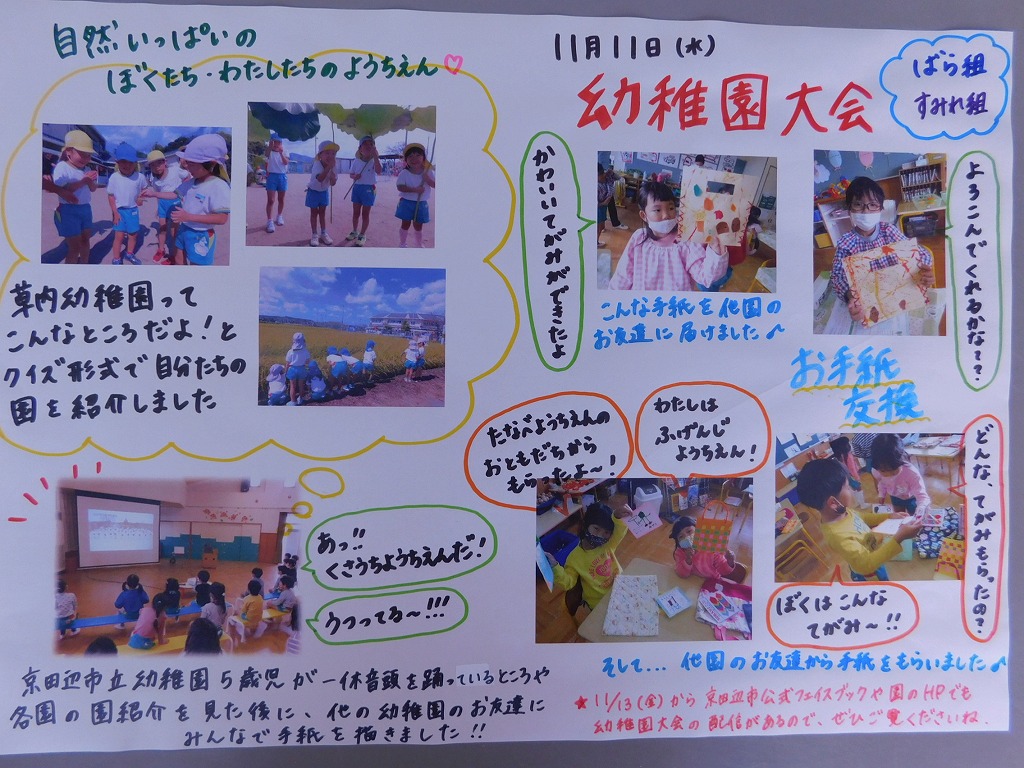 自然いっぱいの
ぼくたち・わたしたちのようちえん♡
草内幼稚園って
こんなところだよ！と
クイズ形式で自分たちの
園を紹介しました
11月11日(水)
幼稚園大会
ばら組
すみれ組
かわいいてがみができたよ
よろこんでくれるかな??
こんな手紙を他園の
お友達に届けました♪
お手紙
交換
たなべようちえんの
おともだちから
もらったよ～！
わたしは
ふげんじ
ようちえん！
どんな、てがみもらったの？
ぼくはこんな
てがみ～!!
あっ!!
くさうちようちえんだ！
うつってる～!!!
そして... 他園のお友達から手紙をもらいました♪
京田辺市立幼稚園5歳児が一休音頭を踊っているところや
各園の園紹介を見た後に、他の幼稚園のお友達に
みんなで手紙を描きました!!
★11/13(金)から京田辺市公式フェイスブックや園のHPでも
幼稚園大会の配信があるので、ぜひご覧くださいね.